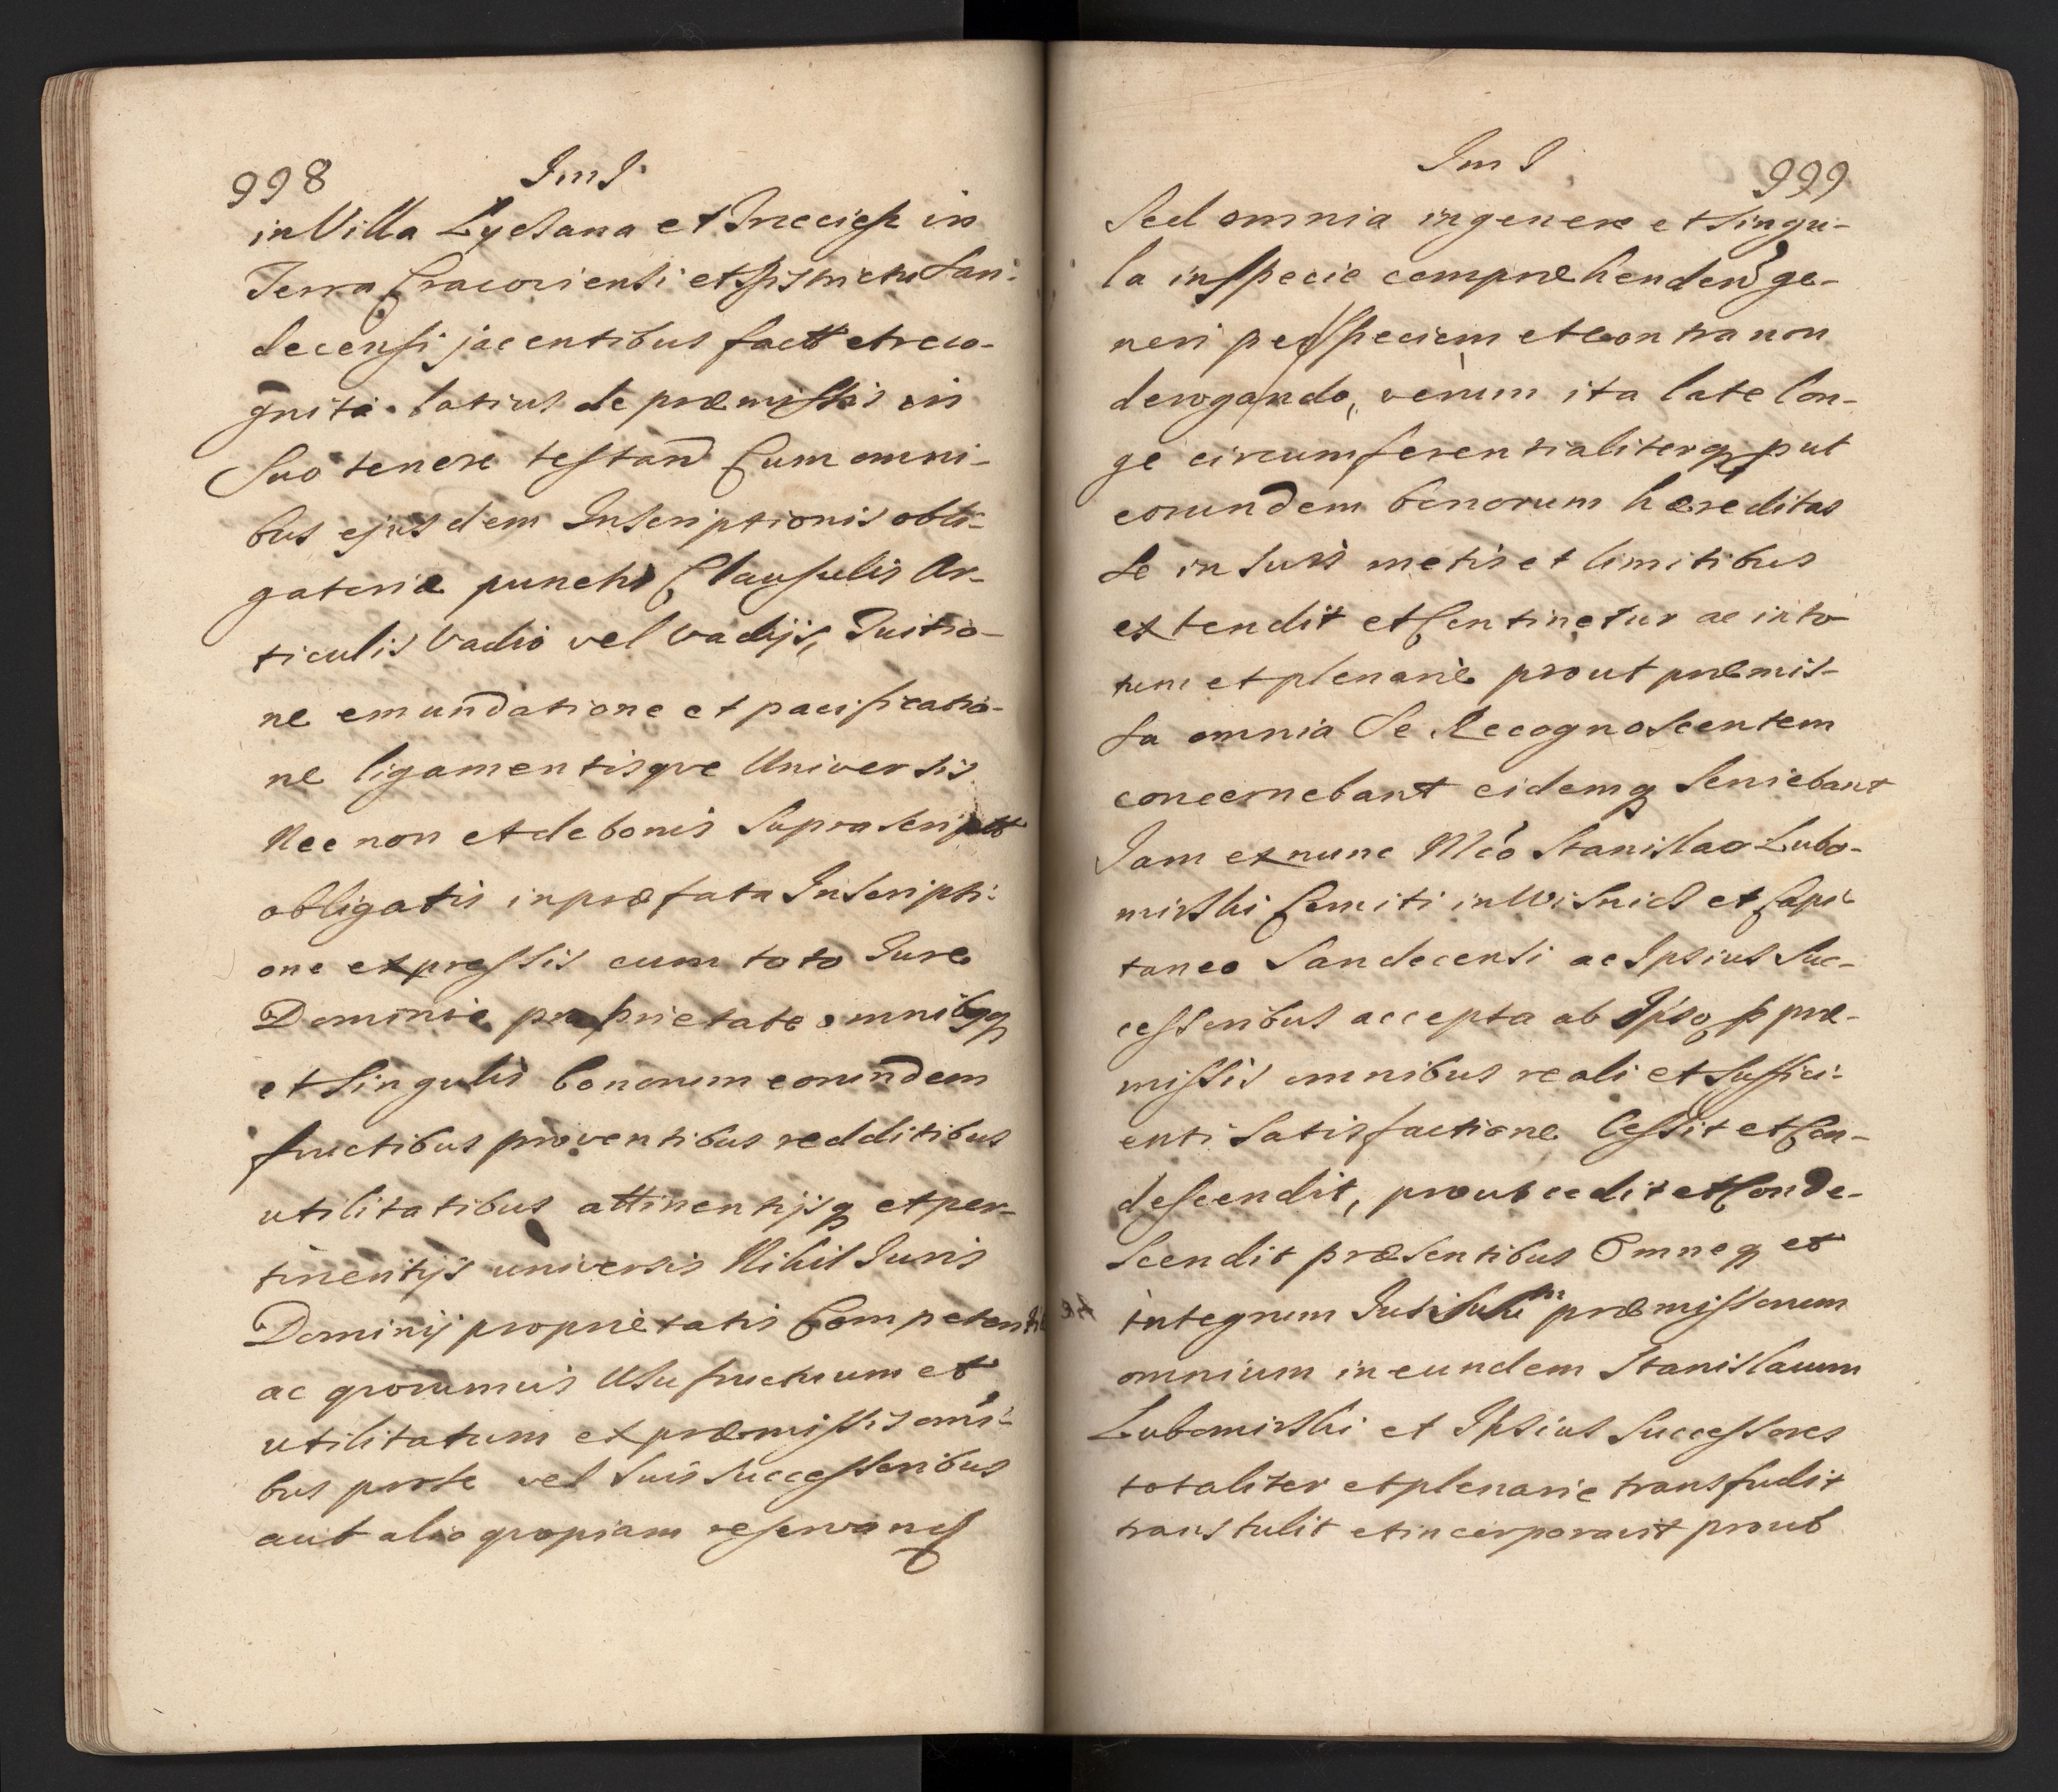 998 ImI.
in Villa Lyčsana et in
Terra Cracoviensi et Districtu San:
decensi jacentibus factt et reco-
gnita. latius de præmissis in
suo tenere testand Cum omni-
bus ejusdem Inscriptionis obli-
gatoriæ punctis Clausulis Ar-
ticulis Vadio vel Vadijs, Tuitio-
ne emundatione et pacificatio-
ne ligamentisqve Universis
Nec non et de bonis Suprascriptt
obligatis in præfata Inscripti:
one expressis cum toto Jure
Dominio proprietate omnibqq
et singulis bonorum eorundem
fructibus proventibus redditibus
utilitatibus attinentijsq et per-
tinentijs universis Nihil Juris
Dominij proprietatis Competen
ac qvorumvis Usufructuum et
utilitatum ex præmissis omi-
bus pro se vel suis successoribus
aut alio qvopiam reservans
ImI. 999
Sed omnia in genere et singu-
la in specie comprehenden ge-
neri per speciem et contra non
derogando, verum ita late lon-
ge circumferentialiterq put
eorundem bonorum hæreditas
se in suis metis et limitibus
extendit et Continetur ac in to-
tum et plenarie prout præmis-
sa omnia se Recognoscentem
concernebant eidemq serviebant
Jam ex nunc Mco Stanislao Lubo-
mirski Comiti in Wisnicz et Capi-
taneo Sandecensi ac Ipsius Suc-
cessoribus accepta ab Ipso p præ-
missis omnibus reali et suffici-
enti Satisfactione Cessit et Con-
descendit, prout cedit et Conde-
scendit præsentibus Omneq et
integrum Jus præmissorum
omnium in eundem Stanislaum
Lubomirski et Ipsius Successores
totaliter et plenarie transfudit
transtulit et incorporavit prout